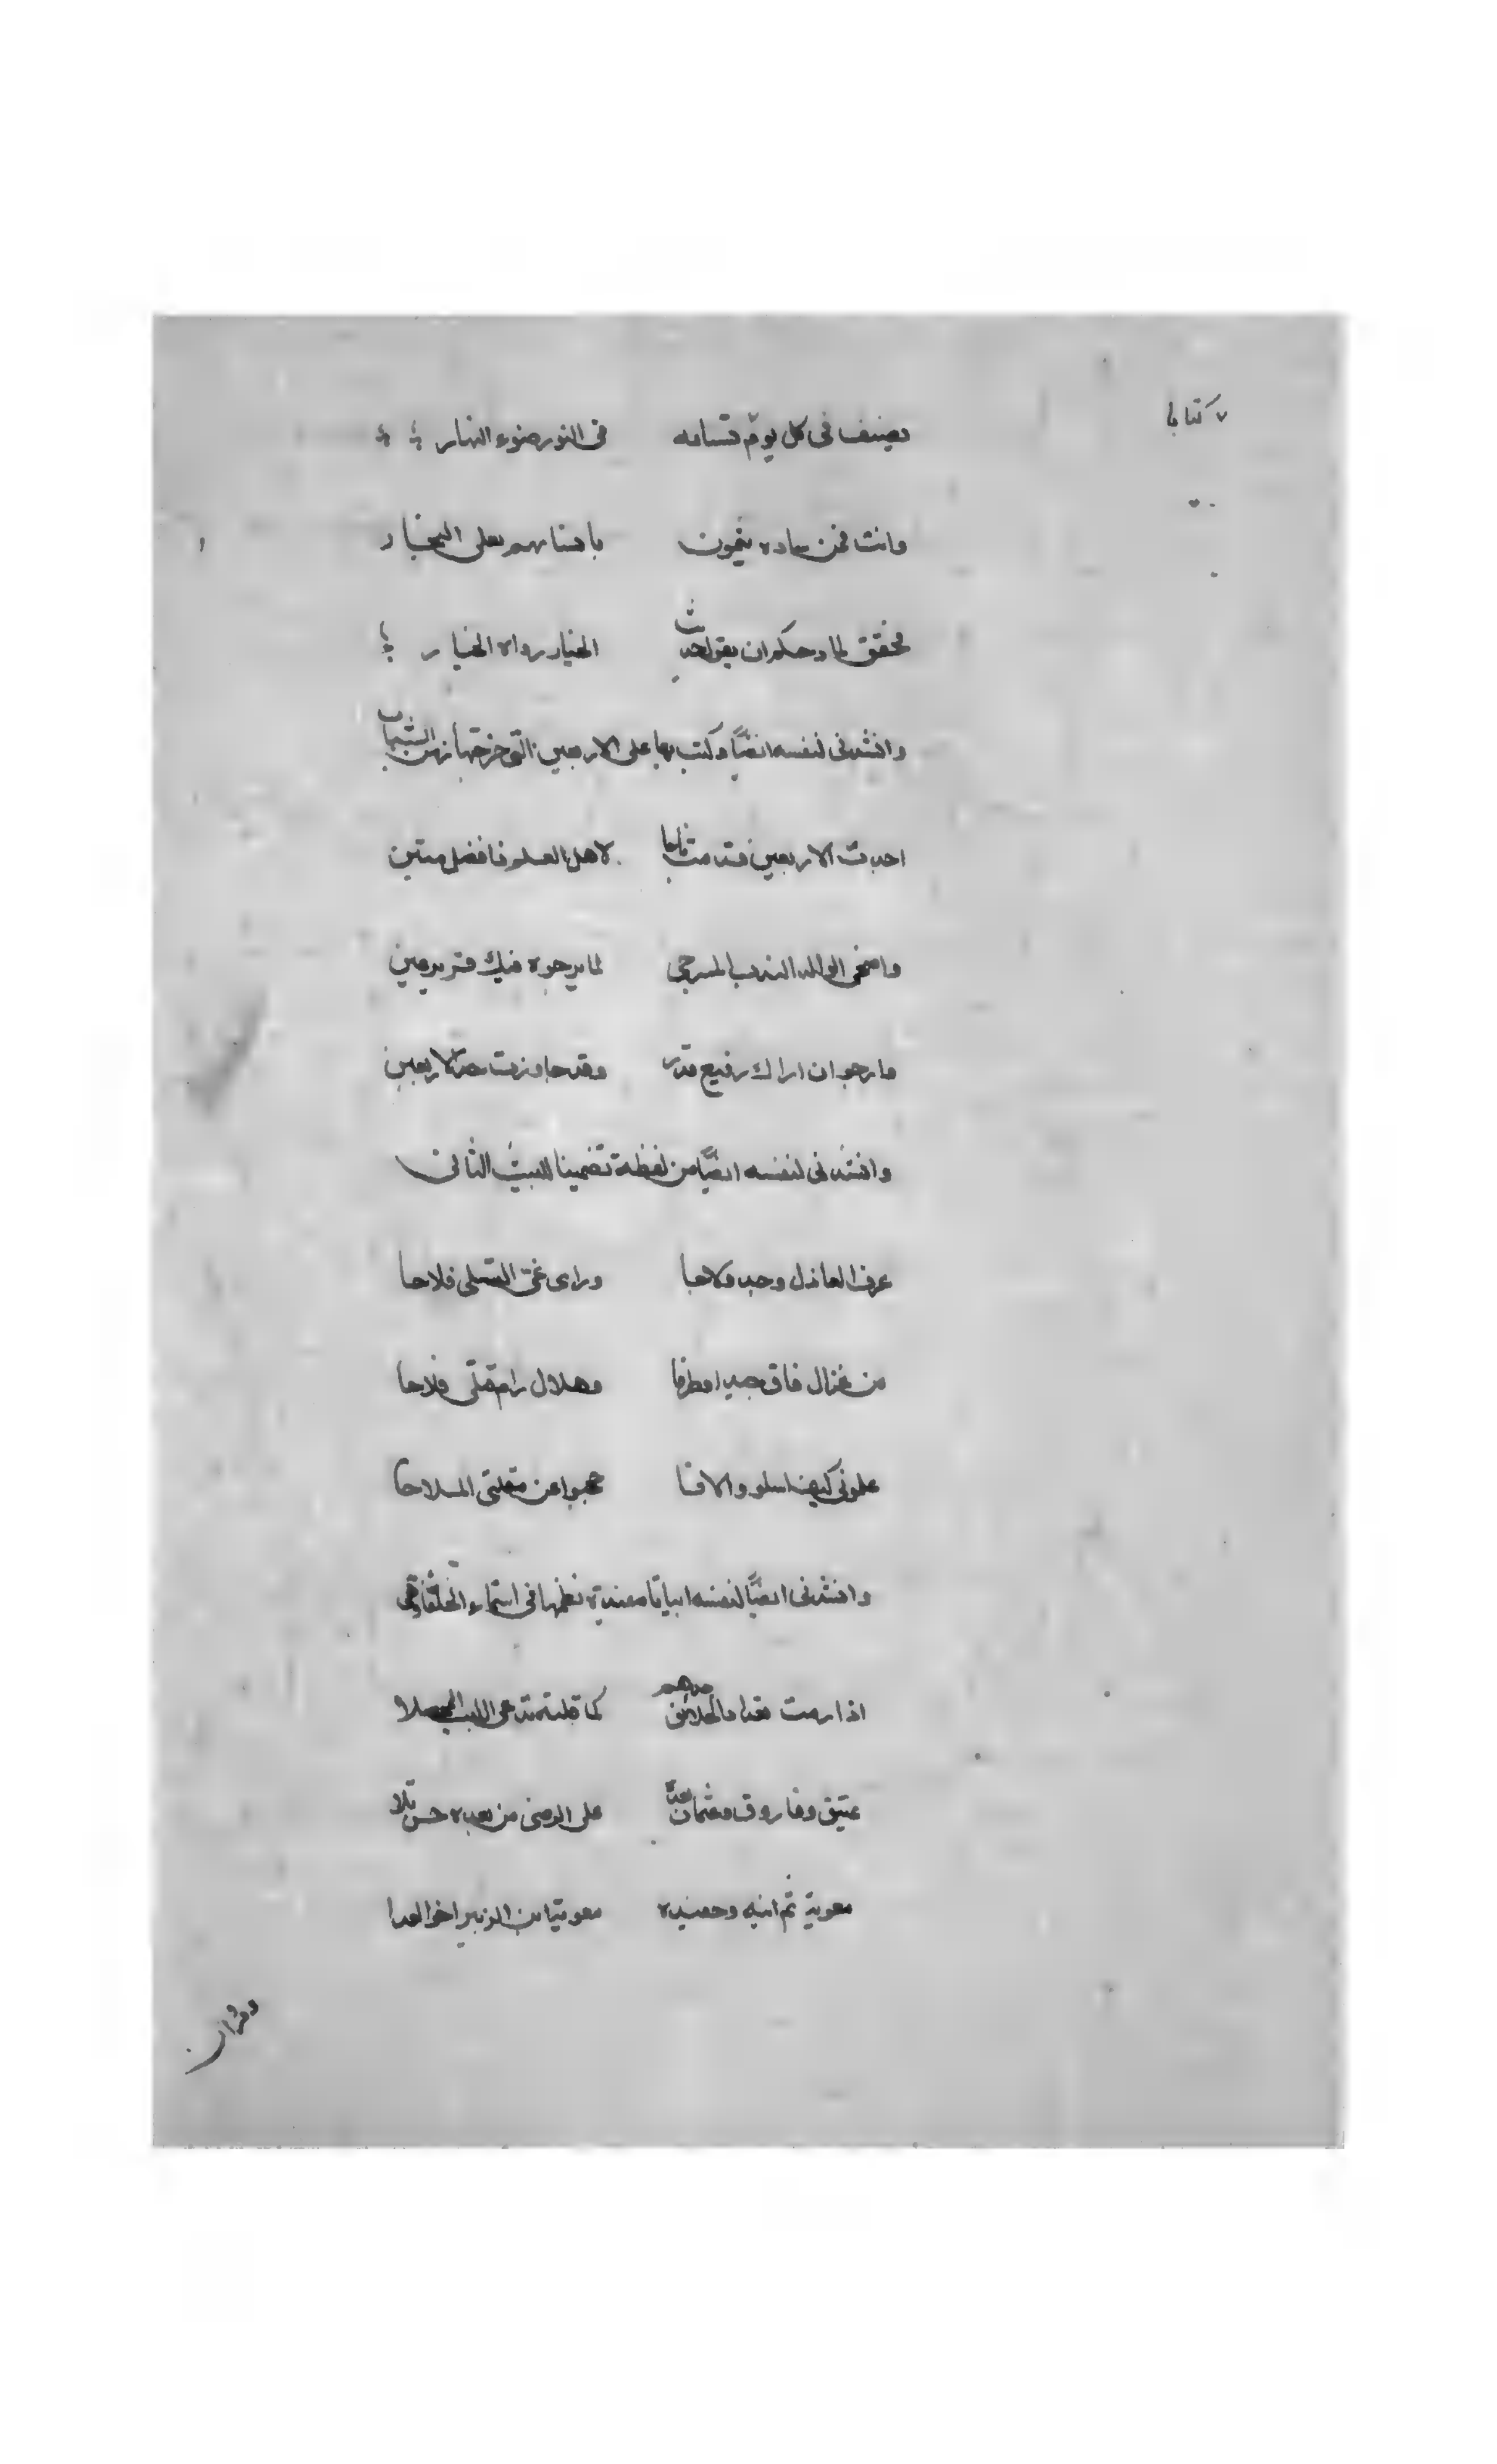 كتابا
تصنف في كل يوم تسامه في النور ضوء النهار
وانت فمن ساده ينمون بانسابهم على البخار
فحقق لما دحكم ان يقول حديث الخيار رواه الخيار
وانشدني لنفسه ايضًا وكتب بها على الاربعين التي خرجتها زمن الشباب
احدت الاربعين فدمت لاهل العلم فافضل متين
واضحى الوالد الندب المرجى لما يرجوه فيك قرير عين
وارجو ان اراك رفيع قدر وقد جاوزت حد الاربعين
وانشدني لنفسه ايضًا من لفظه تضمينا للبيت الثاني
عرف العاذل وجدي ولاحا وراى عنى التسلي فلاحا
من غزال فاق جيدا وطرفا وهلال رام قتلي فلاحا
علموني كيف اسلو والا فا حجبوا عن مقلتي الملاحا
وانشدني ايضًا لنفسه ابياتا مفيدة نظمها في اسماء الخلفاء وهي
اذا رمت تعداد الخلائف عدهم كما قلته تدعى اللبيب المحصلا
عتيق وفاروق وعثمان بعده علي الرضى من بعده حسن تلا
معوية ثم ابنه وحفيده معوية ابن الزبير اخو العلا
ومروان